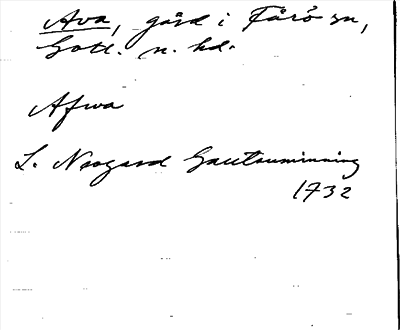 Ava, gård i Fårö sn,
Gotl. n. hd.
Afwa
L. Neogard Gautauminning
1732